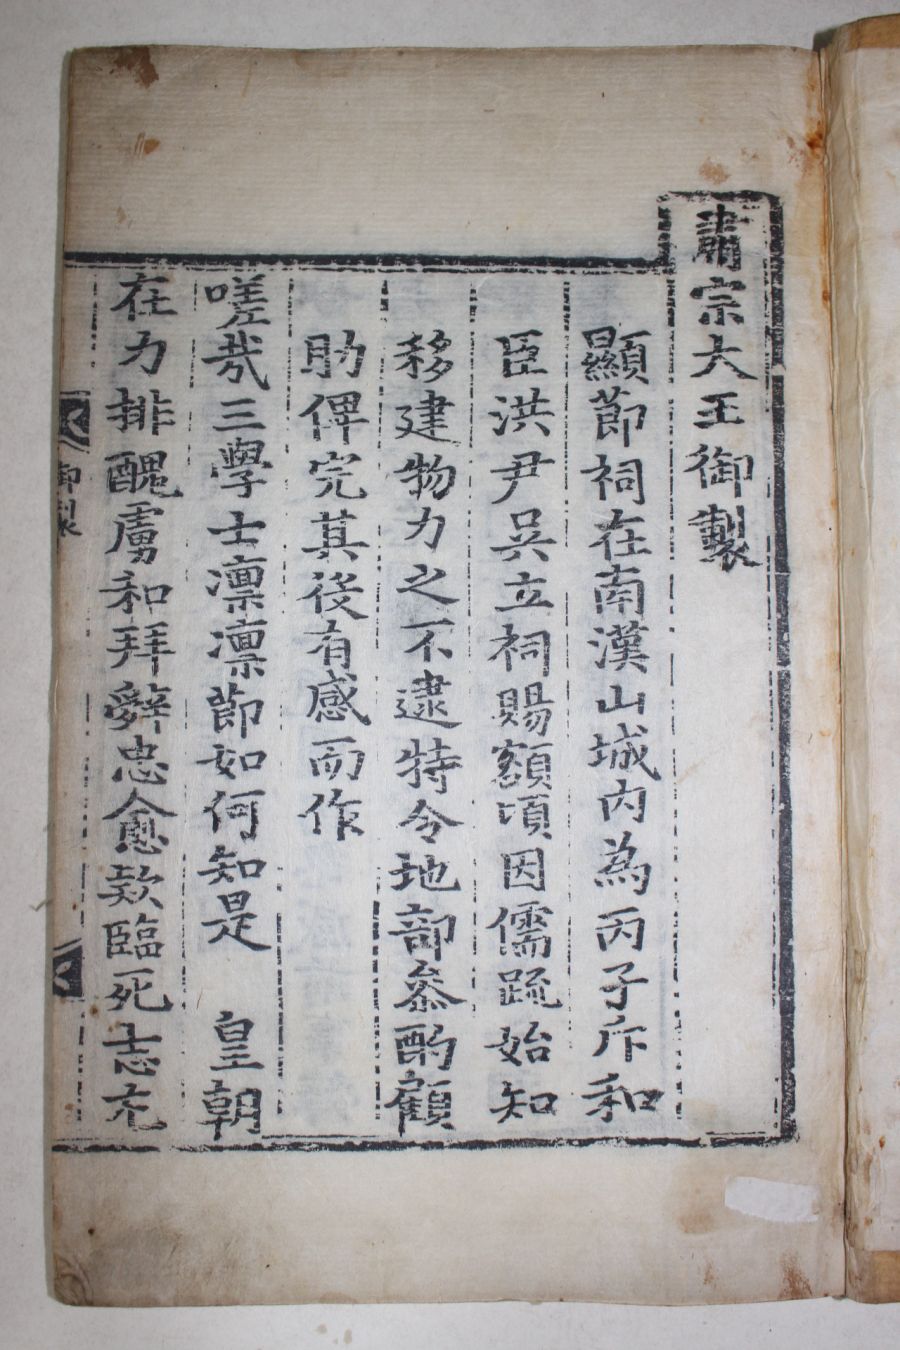 肅宗大王御製
顯節祠在南漢山城內為丙子斥和
臣洪尹吳立祠賜額頃因儒䟽始知
移建物力之不逮特令地部叅酌顧
助俾完其後有感而作
嗟哉三學士凛凛節如何知是 皇朝
在力排醜虜和拜辭忠愈欵臨死志尤
御製